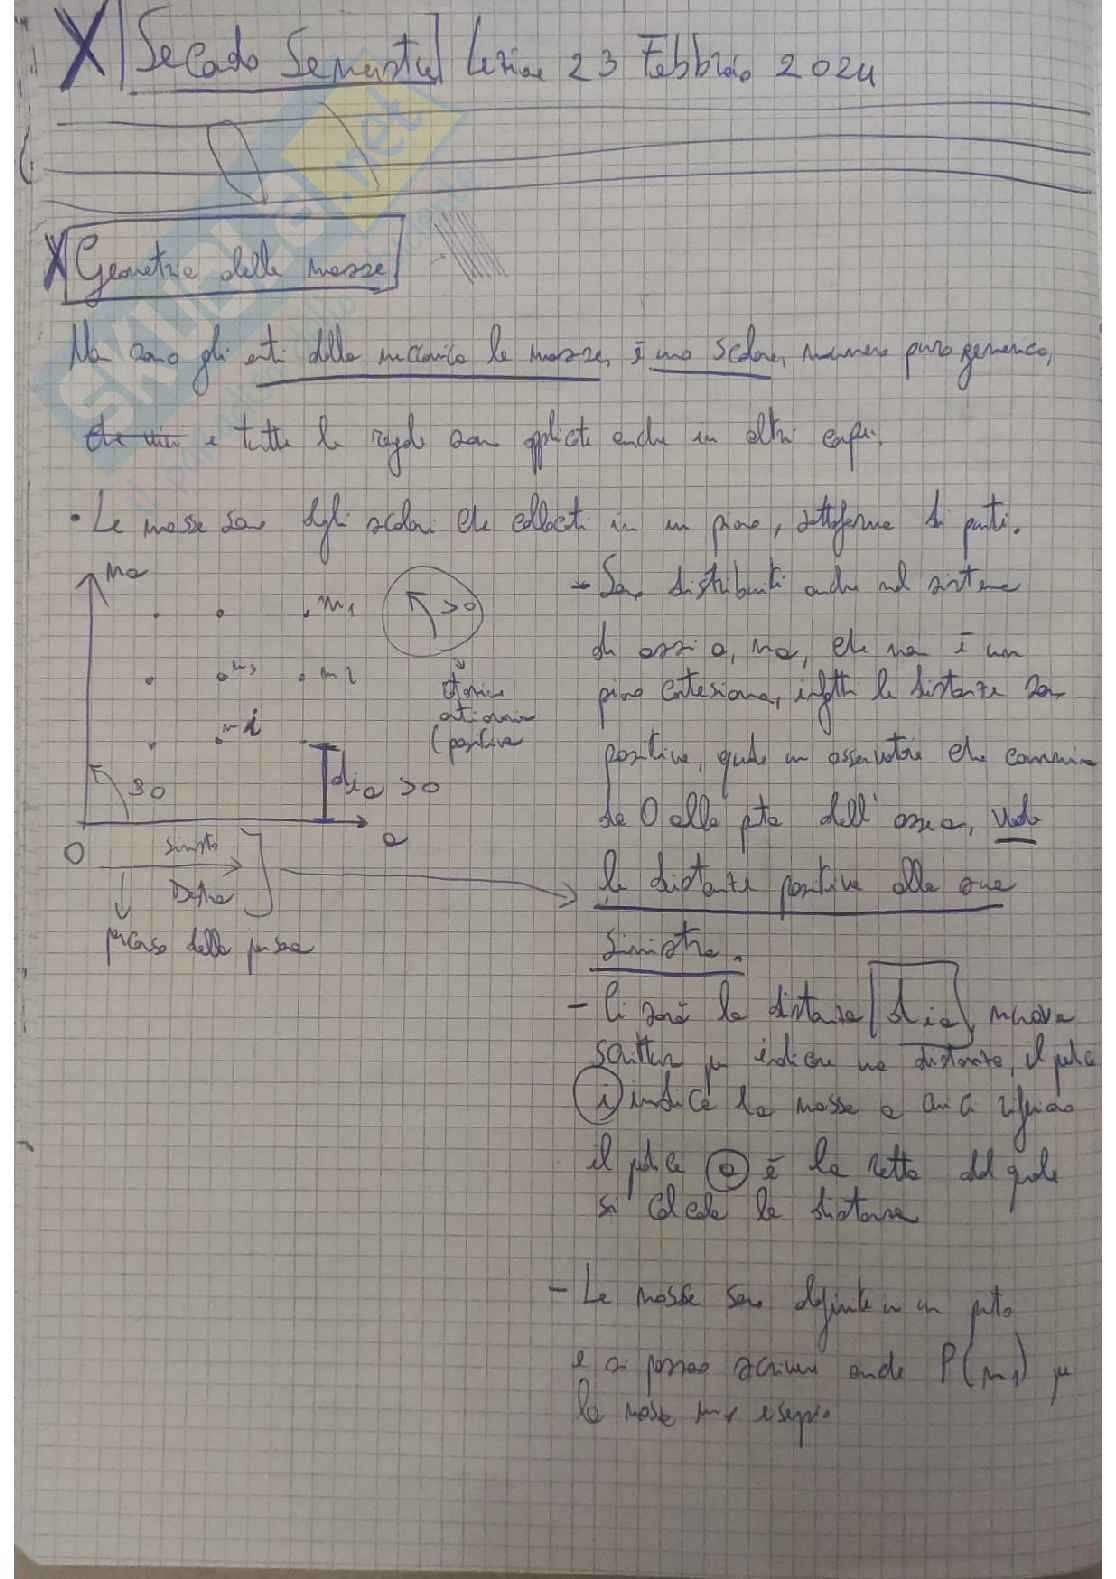 X Secondo Semestre Lezione 23 Febbraio 2024
X Geometria delle masse
Non sono gli enti della meccanica le masse, è uno scalare, numero puro generico,
e tutte le regole sono applicate anche in altri campi.
• Le masse sono degli scalari che collocati in un piano, sottoforma di punti.
na
m1
>0
m3
m2
mi
(positiva
90
dia >0
O
a
Sinistra
Destra
percorso della persona
- Sono distribuiti anche nel sistema
di assi a, na, che non è un
piano cartesiano, infatti le distanze son
positive, quando un osservatore che cammina
da O alla pta dell' asse a, vede
le distanze positive alla sua
sinistra.
- Ci sarà la distanza dia, nuova
scrittura per indicare una distanza, il pedice
i indica la massa a cui ci riferiamo
il pedice a è la retta dal quale
si calcola la distanza
- Le masse sono definite in un punto
e si possono scrivere anche P(m1) per
la massa m1 esempio